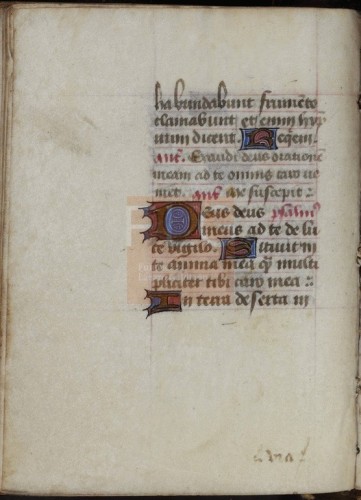 habundabunt frumēto
clamabunt et enim ymp
num dicent. Reqem.
Añt. Exaudi deus oratione
meam ad te omnis caro ve
niet. añt. Me suscepit :
Deus deus psalm⁹
meus ad te de lu
ce vigilo. Sitiuit in
te anima mea qͣ multi
pliciter tibi caro mea :
In terra deserta in